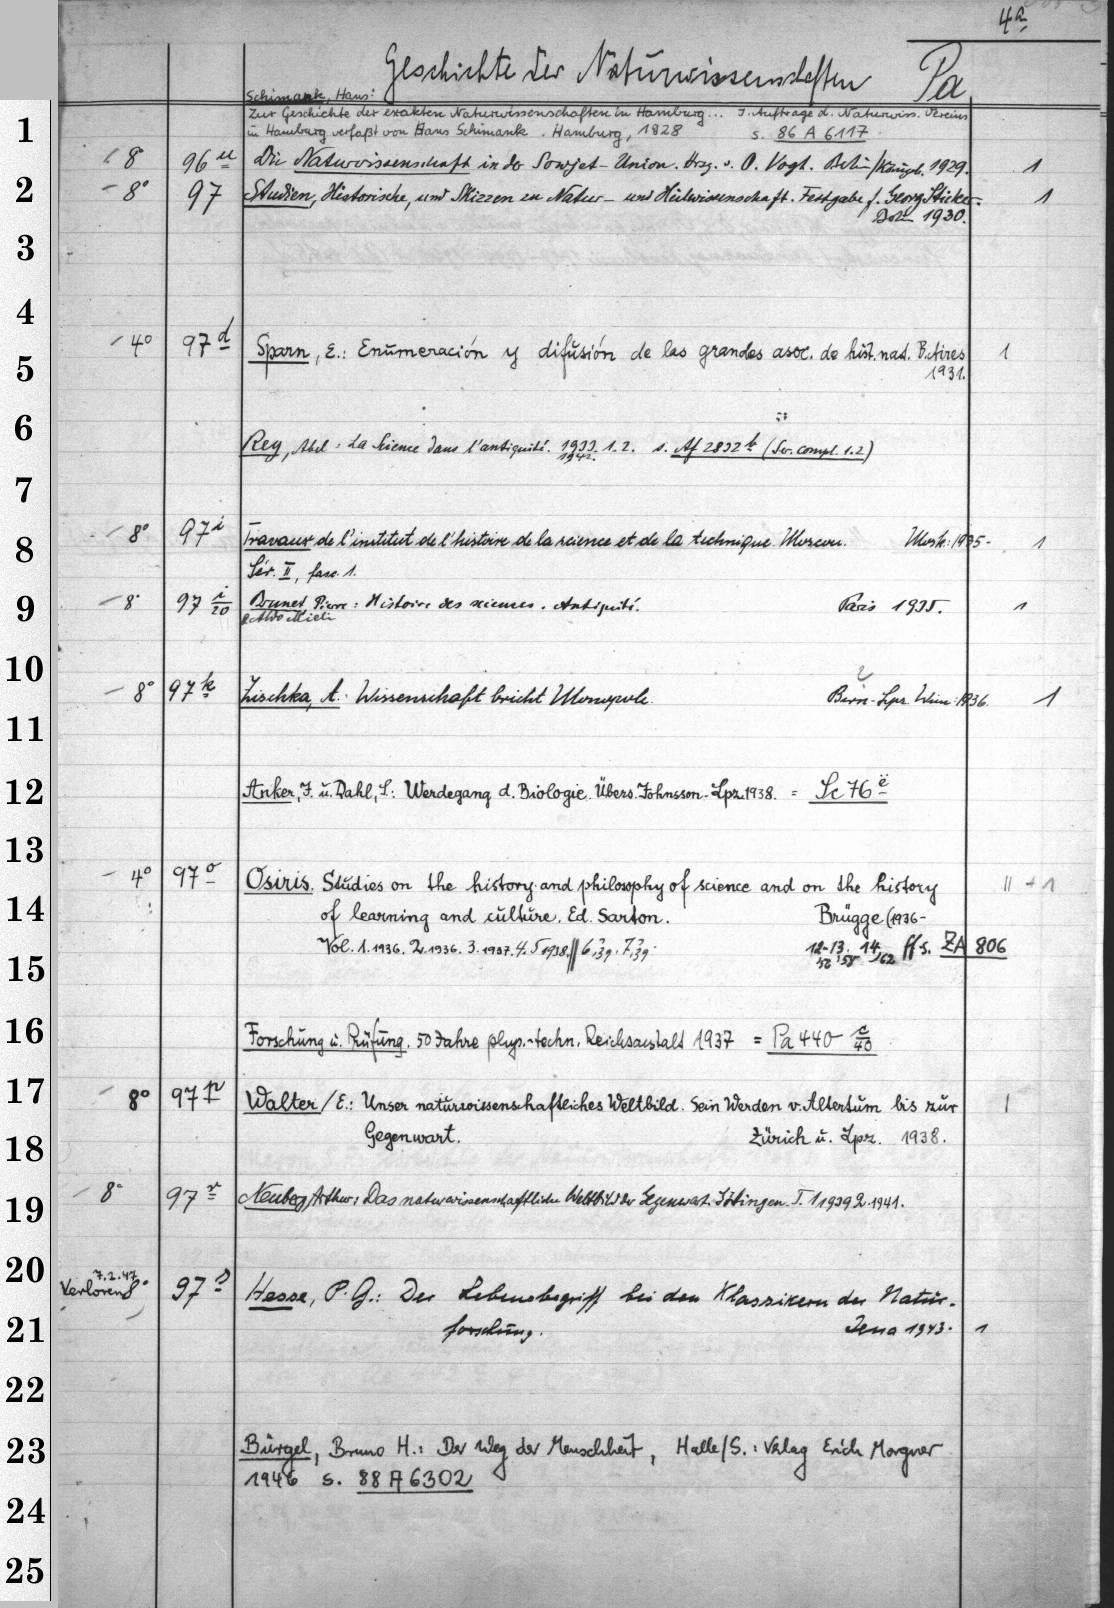 4a
Geschichte der Naturwissenschaften Pa
Schimank, Hans:
1 Zur Geschichte der exakten Naturwissenschaften in Hamburg... I. Auftrage d. Naturwiss. Vereins
in Hamburg verfaßt von Hans Schimank. Hamburg, 1928 s. 86 A 6117
8° 96 u Die Naturwissenschaft in der Sowjet-Union. Hrsg. v. O. Vogt. Berlin/Königsb. 1929. 1
2 8° 97 Studien, Historische, und Skizzen zu Natur- und Heilwissenschaft. Festgabe f. Georg Sticker.
1
Bln 1930.
3
4
4° 97 d Sparn, E.: Enumeración y difusión de las grandes asoc. de hist. nat. B. Aires 1
5 1931.
6
Rey, Abel: La Science dans l'antiquité. 1933. 1. 2. s. Af 2832 k (Ser. compl. 1.2)
1942.
7
8° 97 i Travaux de l'institut de l'histoire de la science et de la technique. Moscou. Mosk: 1935- 1
8
Sér. II, fasc. 1.
9 8° 97 i/20 Brunet, Pierre: Histoire des sciences. Antiquité. Paris 1935. 1
& Aldo Mieli
10
8° 97 k Zischka, A.: Wissenschaft bricht Monopole. Bern-Lpz. Wien: 1936. 1
11
12 Anker, J. u. Dahl, S.: Werdegang d. Biologie. Übers. Johnsson. Lpz. 1938. = Sc 76 e
13
4° 97 o Osiris. Studies on the history and philosophy of science and on the history II + 1
14 of learning and culture. Ed. Sarton. Brügge (1936-
Vol. 1. 1936. 2. 1936. 3. 1937. 4. 5 1938. || 6, 39. 7, 39. 12- 13. 14, ff s. ZA 806
56 58 62
15
16 Forschung u. Prüfung. 50 Jahre phys.-techn. Reichsanstalt 1937 = Pa 440 c/40
17 8° 97 p Walter, E.: Unser naturwissenschaftliches Weltbild. Sein Werden v. Altertum bis zur 1
18 Gegenwart. Zürich u. Lpz. 1938.
8° 97 r Neuberg, Arthur: Das naturwissenschaftliche Weltbild der Gegenwart. Göttingen. T. 1 1939 2. 1941.
19
20 7.2.47
Verloren 8° 97 s Hesse, P. G.: Der Lebensbegriff bei den Klassikern der Natur-
21 forschung. Jena 1943. 1
22
23 Bürgel, Bruno H.: Der Weg der Menschheit, Halle/S.: Verlag Erich Morgner
1946 s. 88 A 6302
24
25